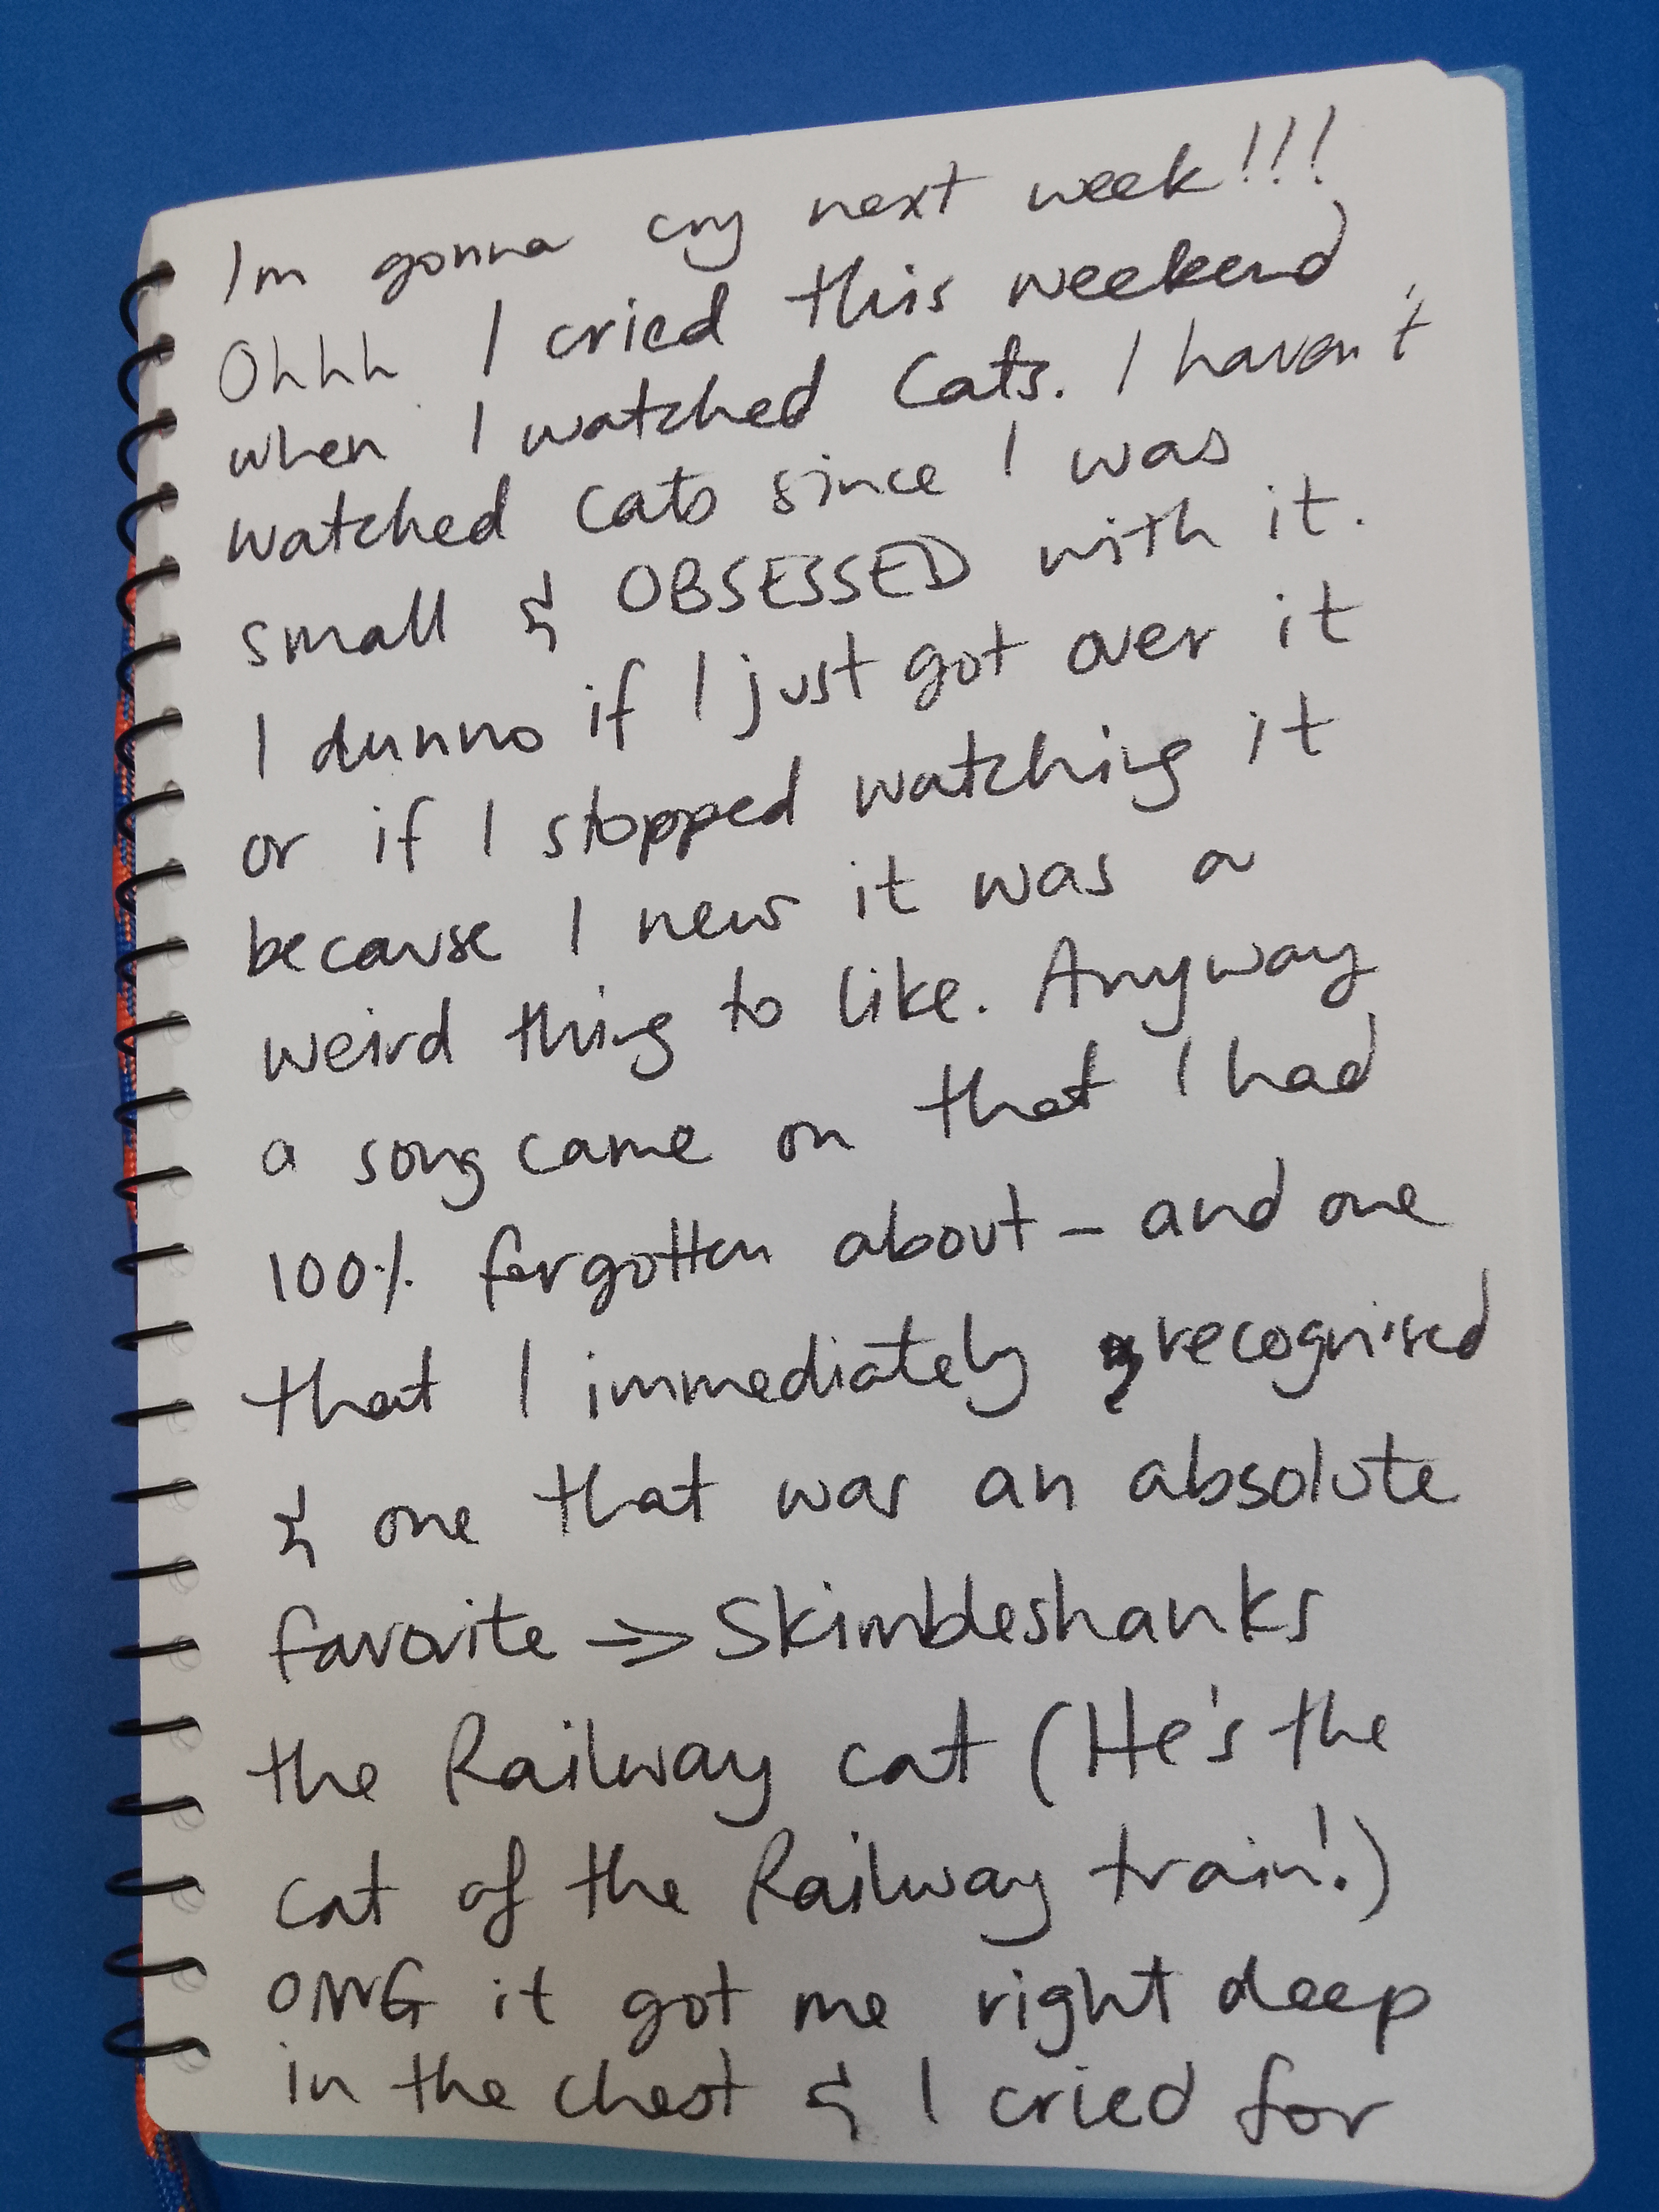 Im gonna cry next week!!!
Ohhh I cried this weekend
when I watched Cats. I haven't
watched Cats since I was
small & OBSESSED with it.
I dunno if I just got over it
or if I stopped watching it
because I new it was a
weird thing to like. Anyway
a song came on that I had
100% forgotten about - and one
that I immediately recognised
& one that was an absolute
favorite => Skimbleshanks
the Railway cat (He's the
cat of the Railway train!)
OMG it got me right deep
in the chest & I cried for